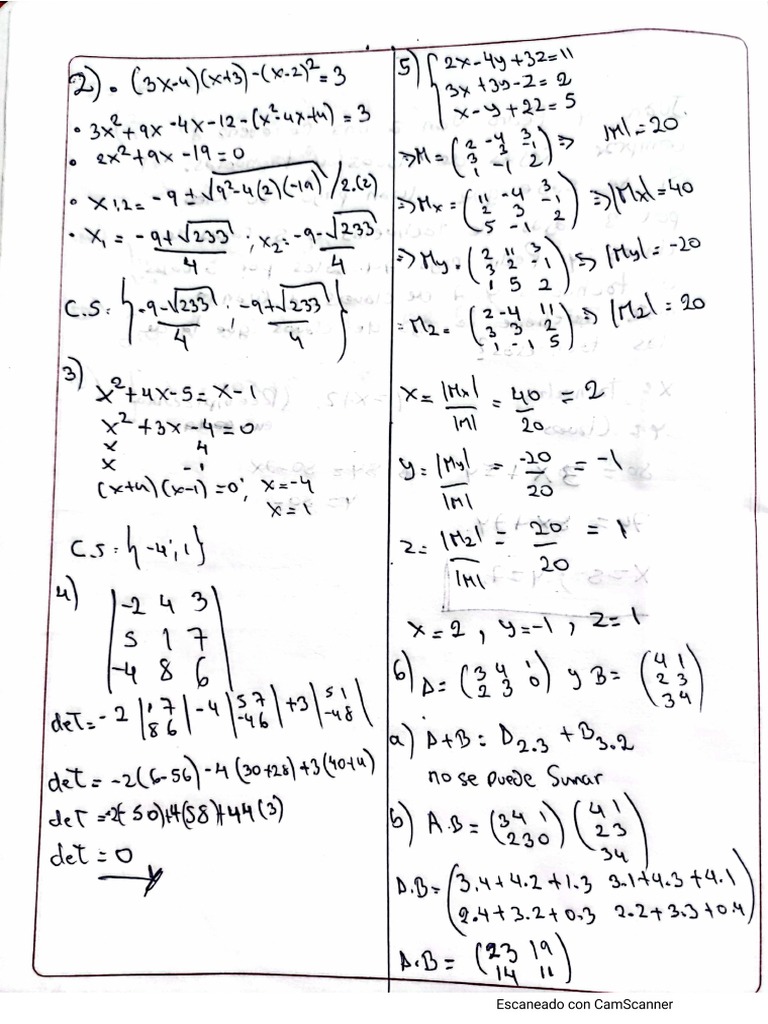 2) • (3x-4)(x+3)-(x-2)² = 3
• 3x²+9x-4x-12-(x²-4x+4) = 3
• 2x²+9x-19=0
• x1,2 = -9 ± √(9²-4(2)(-19)) / 2.(2)
• x₁ = (-9+√233)/4 ; x₂ = (-9-√233)/4
C.S: {(-9-√233)/4 ; (-9+√233)/4}
3)
x²+4x-5 = x-1
x²+3x-4=0
x 4
x -1
(x+4)(x-1)=0; x=-4
x=1
C.S: {-4; 1}
4)
|-2 4 3|
|5 1 7|
|-4 8 6|
det = -2 |1 7; 8 6| -4 |5 7; -4 6| +3 |5 1; -4 8|
det = -2(6-56)-4(30+28)+3(40+4)
det = 0
5) { 2x-4y+3z=11
3x+3y-z=2
x-y+2z=5
=> M = (2 -4 3; 3 3 -1; 1 -1 2) => |M|=20
=> Mx = (11 -4 3; 2 3 -1; 5 -1 2) => |Mx|=40
=> My = (2 11 3; 3 2 -1; 1 5 2) => |My| = -20
= Mz = (2 -4 11; 3 3 2; 1 -1 5) => |Mz| = 20
x = |Mx|/|M| = 40/20 = 2
y = |My|/|M| = -20/20 = -1
z = |Mz|/|M| = 20/20 = 1
x=2, y=-1, z=1
6) A = (3 4 1; 2 3 0) y B = (4 1; 2 3; 3 4)
a) A+B = A2.3 + B3.2
no se puede Sumar
b) A.B = (3 4 1; 2 3 0)(4 1; 2 3; 3 4)
A.B = (3.4+4.2+1.3 3.1+4.3+4.1
2.4+3.2+0.3 2.2+3.3+0.4)
A.B = (23 19
14 11)
Escaneado con CamScanner